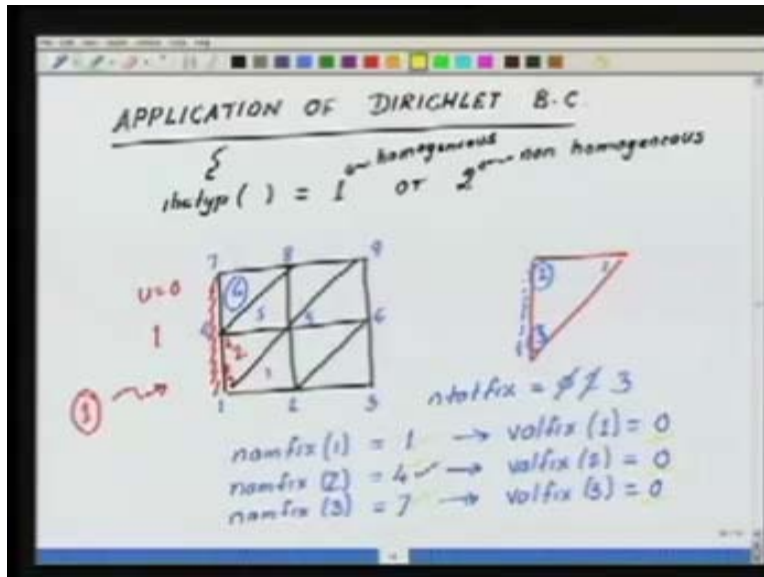 APPLICATION OF DIRICHLET B.C.
homogeneous non homogeneous
( ) = 1 or 2
7 8 9
4 1
u=0 2
5 5 3
1 4 6
2
3 1
1
1 2 3
ntotfix = 0 2 3
nomfix (1) = 1 → valfix (1) = 0
nomfix (2) = 4 → valfix (2) = 0
nomfix (3) = 7 → valfix (3) = 0